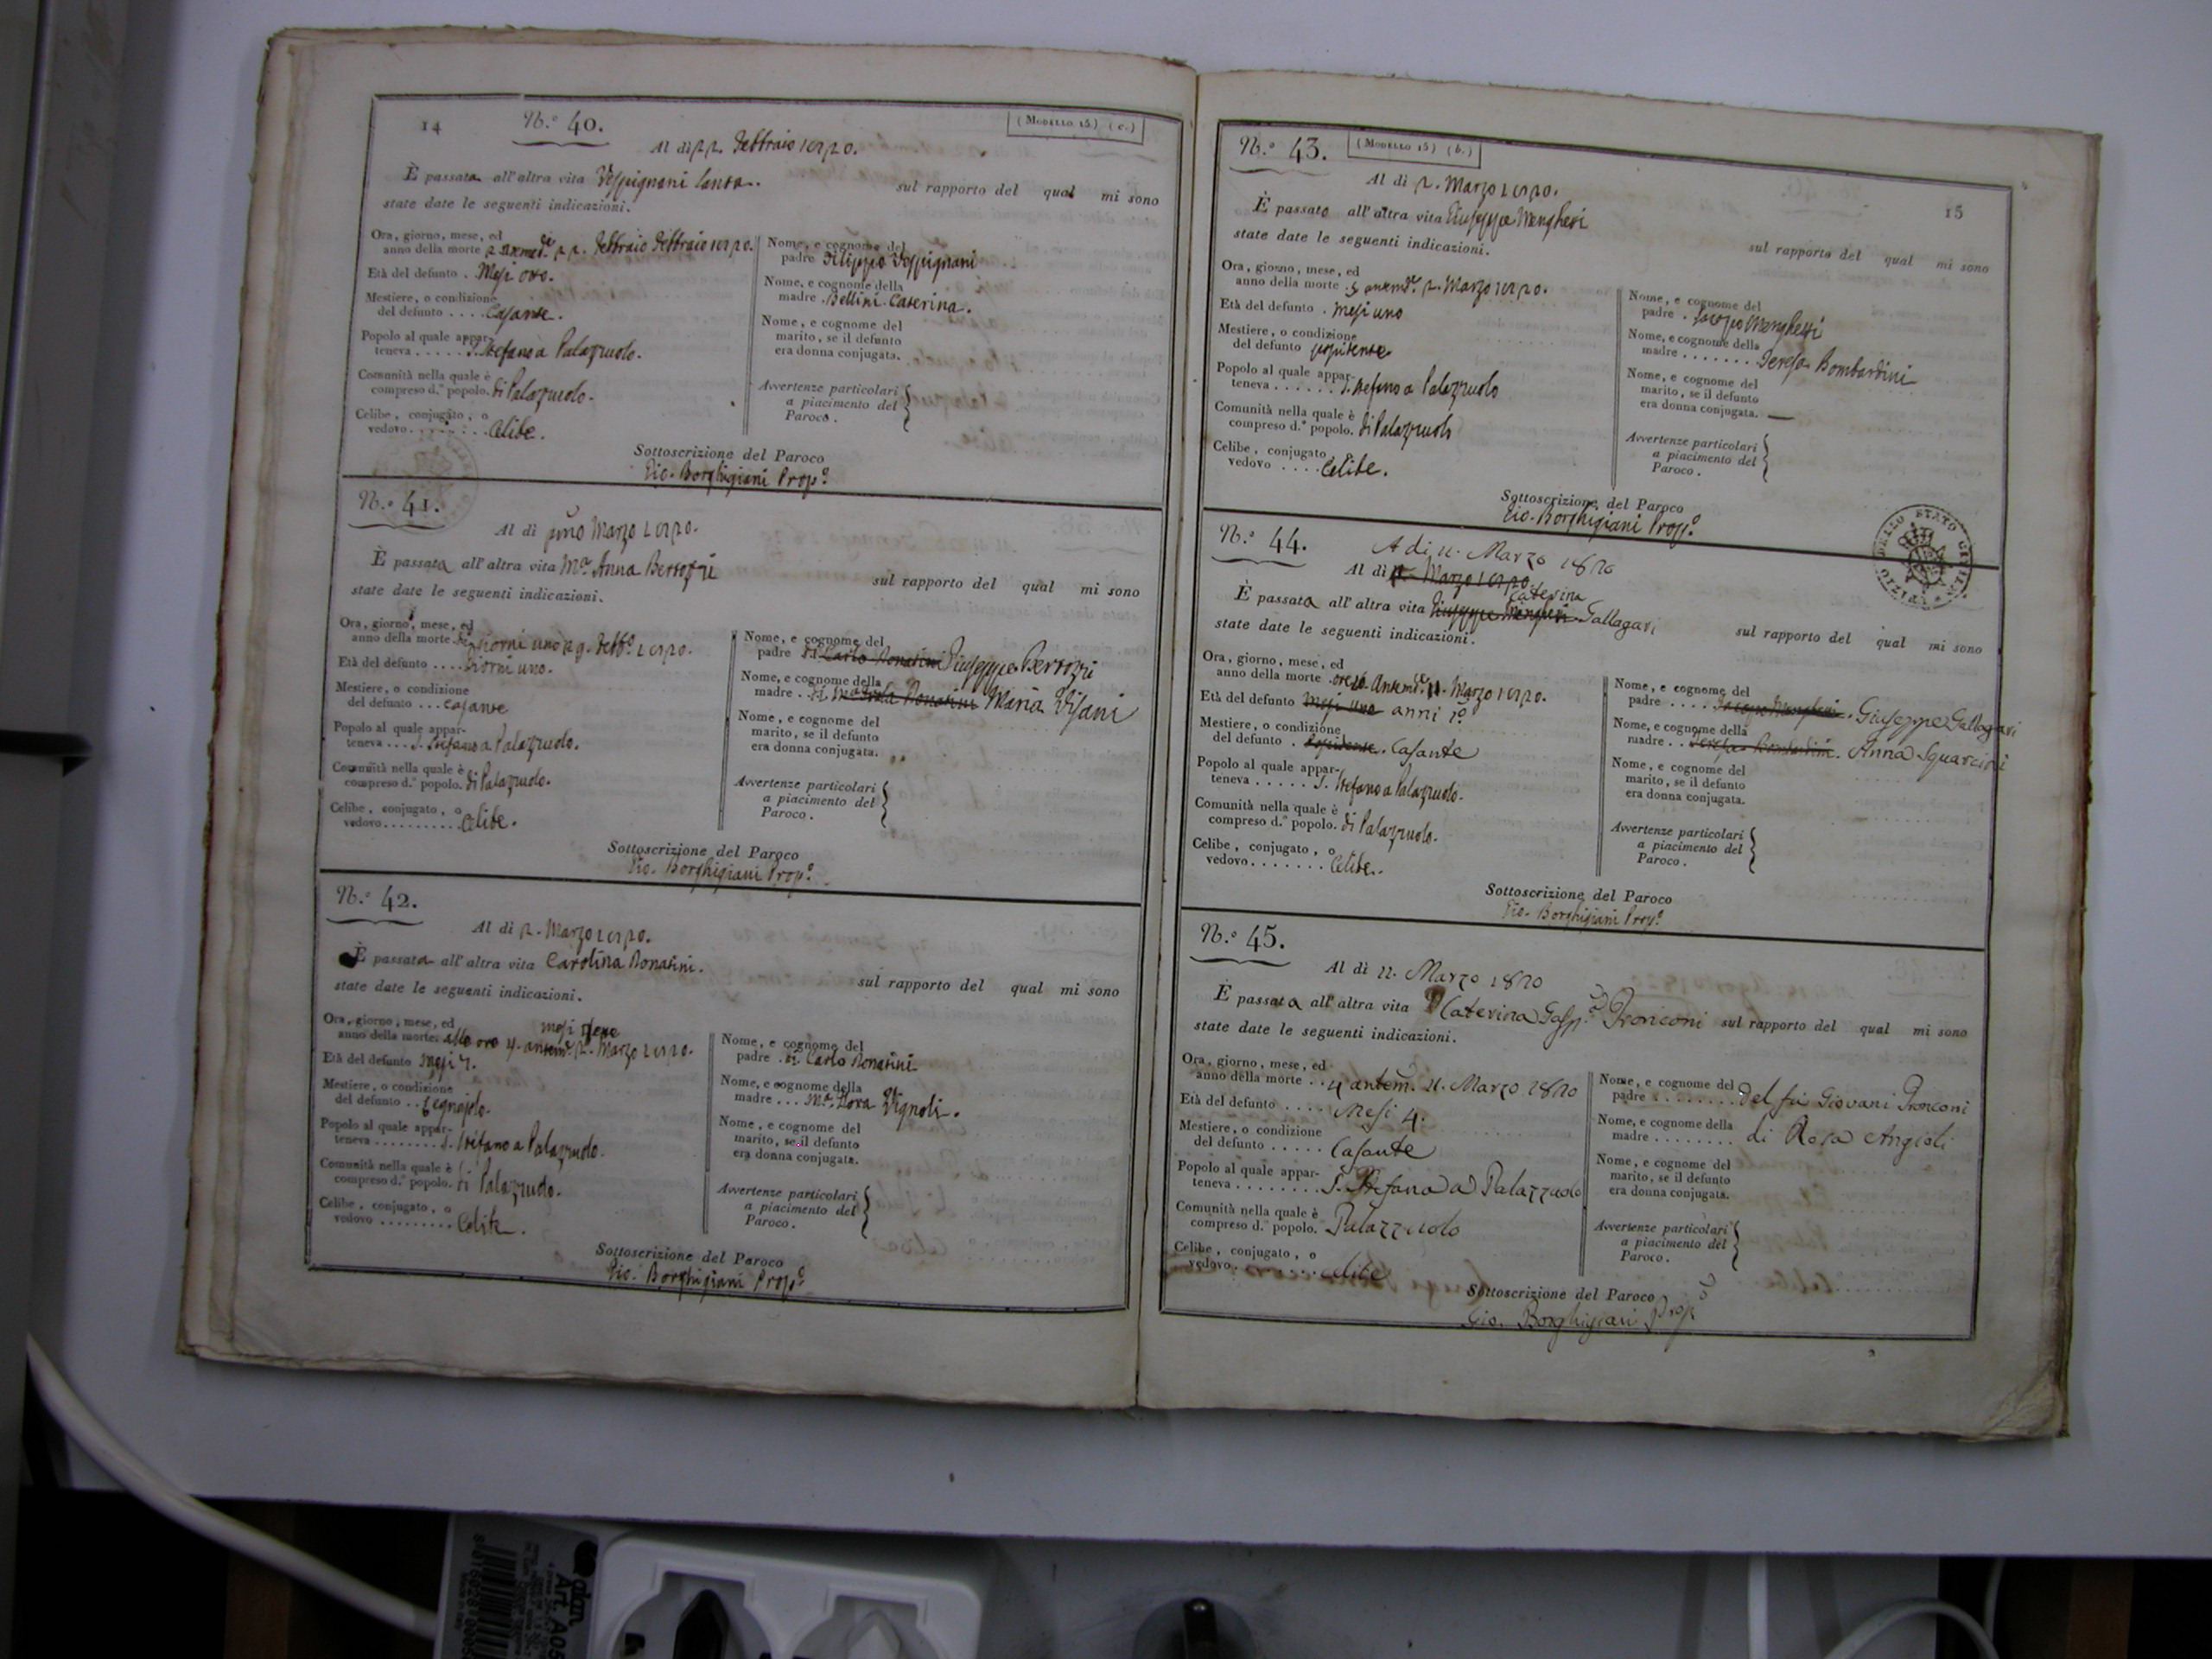 14
N.º 40.
(Modello 15) (c.)
Al di 22. Febbraio 1820.
È passata all'altra vita Vespignani Santa..
sul rapporto del qual mi sono
state date le seguenti indicazioni.
Ora, giorno, mese, ed
anno della morte Febbraio Febbraio 1820.
Età del defunto . Mesi otto.
Mestiere, o condizione
del defunto .... Casante.
Popolo al quale appar-
teneva ..... S. Stefano a Palazzuolo.
Comunità nella quale è
compreso d.º popolo. di Palazzuolo.
Celibe, conjugato, o
vedovo ........ Celibe.
Nome, e cognome del
padre Filippo Vespignani
Nome, e cognome della
madre . Bellini Caterina.
Nome, e cognome del
marito, se il defunto
era donna conjugata.
Avvertenze particolari
a piacimento del
Paroco.
Sottoscrizione del Paroco
Gio. Borghigiani Prop.º
N.º 41.
Al di uno Marzo 1820.
È passata all'altra vita M.ª Anna Bertozzi
sul rapporto del qual mi sono
state date le seguenti indicazioni.
Ora, giorno, mese, ed
anno della morte Giorni uno 29. Febb.º 1820.
Età del defunto .... Giorni uno.
Mestiere, o condizione
del defunto ... Casante
Popolo al quale appar-
teneva .... S. Stefano a Palazzuolo.
Comunità nella quale è
compreso d.º popolo. di Palazzuolo.
Celibe, conjugato, o
vedovo......... Celibe.
Nome, e cognome del
padre Carlo Donatini Giuseppe Bertozzi
Nome, e cognome della
madre . Donatini Maria Visani
Nome, e cognome del
marito, se il defunto
era donna conjugata.
Avvertenze particolari
a piacimento del
Paroco.
Sottoscrizione del Paroco
Gio. Borghigiani Prop.º
N.º 42.
Al di 2. Marzo 1820.
È passata all'altra vita Carolina Donatini.
sul rapporto del qual mi sono
state date le seguenti indicazioni.
mesi
Ora, giorno, mese, ed
anno della morte. alle ore 4. antem.e 2. Marzo 1820.
Età del defunto Mesi 7.
Mestiere, o condizione
del defunto .. Legnajolo.
Popolo al quale appar-
teneva ........ S. Stefano a Palazzuolo.
Comunità nella quale è
compreso d.º popolo. di Palazzuolo.
Celibe, conjugato, o
vedovo ......... Celibe.
Nome, e cognome del
padre . di Carlo Donatini
Nome, e cognome della
madre ... M.ª Vignoli.
Nome, e cognome del
marito, se il defunto
era donna conjugata.
Avvertenze particolari
a piacimento del
Paroco.
Sottoscrizione del Paroco
Gio. Borghigiani Prop.º
N.º 43.
(Modello 15) (b.)
15
Al di 2. Marzo 1820.
È passato all'altra vita Giuseppe Menghesi
sul rapporto del qual mi sono
state date le seguenti indicazioni.
Ora, giorno, mese, ed
anno della morte . 5 antem.e 2. Marzo 1820.
Età del defunto . Mesi uno
Mestiere, o condizione
del defunto possidente
Popolo al quale appar-
teneva ...... S. Stefano a Palazzuolo
Comunità nella quale è
compreso d.º popolo. di Palazzuolo
Celibe, conjugato
vedovo .... Celibe.
Nome, e cognome del
padre . Jacopo Menghesi
Nome, e cognome della
madre ....... Teresa Bombardini
Nome, e cognome del
marito, se il defunto
era donna conjugata. —
Avvertenze particolari
a piacimento del
Paroco.
Sottoscrizione del Paroco
Gio. Borghigiani Prop.º
N.º 44.
A di 11. Marzo 1820
Al di Marzo 1820
Caterina
È passata all'altra vita Giuseppe Menghesi Gallagari
sul rapporto del qual mi sono
state date le seguenti indicazioni.
Ora, giorno, mese, ed
anno della morte . ore 10. Antem.e 11. Marzo 1820.
Età del defunto Mesi uno anni
Mestiere, o condizione
del defunto . Possidente. Casante
Popolo al quale appar-
teneva ..... S. Stefano a Palazzuolo.
Comunità nella quale è
compreso d.º popolo. di Palazzuolo.
Celibe, conjugato, o
vedovo....... Celibe..
Nome, e cognome del
padre .... Jacopo Menghesi. Giuseppe Gallagari
Nome, e cognome della
madre .. Teresa Bombardini. Anna Squarcini
Nome, e cognome del
marito, se il defunto
era donna conjugata.
Avvertenze particolari
a piacimento del
Paroco.
Sottoscrizione del Paroco
Gio. Borghigiani Prop.º
N.º 45.
Al di 11. Marzo 1820
È passata all'altra vita Caterina Gasp.ª Tronconi sul rapporto del qual mi sono
state date le seguenti indicazioni.
Ora, giorno, mese, ed
anno della morte .. 4 antem. 11. Marzo 1820
Età del defunto .... Mesi 4.
Mestiere, o condizione
del defunto ..... Casante
Popolo al quale appar-
teneva ........ S. Stefano a Palazzuolo
Comunità nella quale è
compreso d.º popolo. Palazzuolo
Celibe, conjugato, o
vedovo......... celibe
Nome, e cognome del
padre ........ del fu Giovani Tronconi
Nome, e cognome della
madre ........ di Rosa Angioli
Nome, e cognome del
marito, se il defunto
era donna conjugata.
Avvertenze particolari
a piacimento del
Paroco.
Sottoscrizione del Paroco
Gio. Borghigiani Prop.º
2
Art. A05